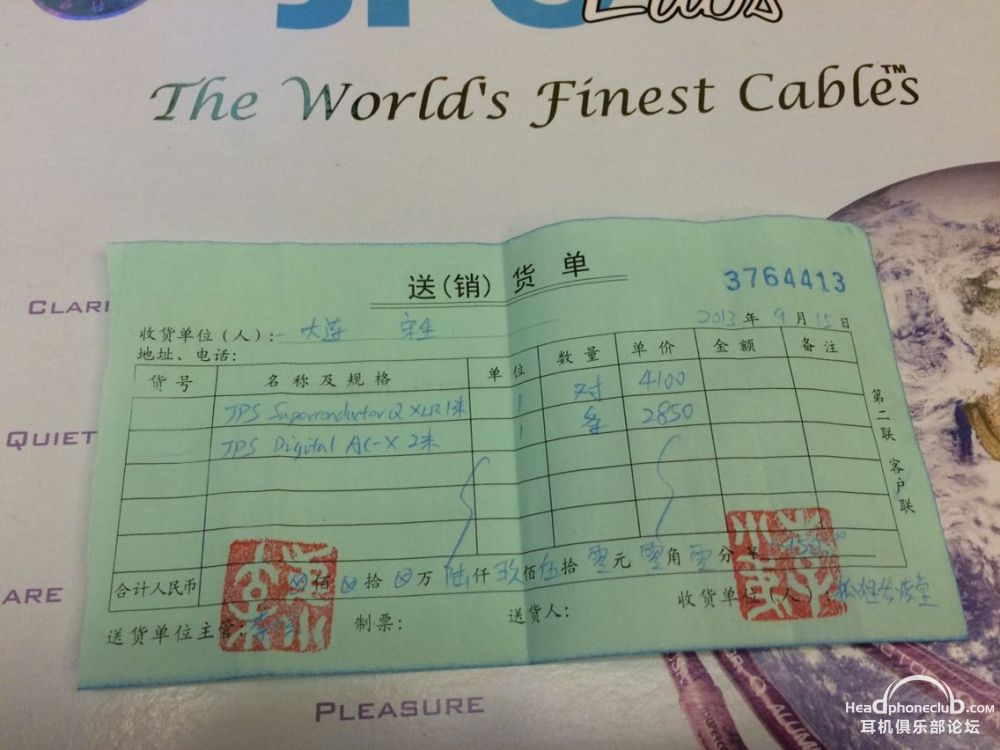 Labs
The World's Finest Cables™
送(销)货单
3764413
收货单位(人): 大连 宋生
2013年9月15日
地址、电话:
货号 名称及规格 单位 数量 单价 金额 备注
JPS Superconductor Q XLR 1米 1 对 4100
JPS Digital AC-X 2米 1 条 2850
第二联 客户联
合计人民币 ⊗佰⊗拾⊗万陆仟玖佰伍拾零元零角零分¥
送货单位主管: 制票: 送货人: 收货单位(人)
CLARI
QUIET
ARE
PLEASURE
Headphoneclub.com
耳机俱乐部论坛